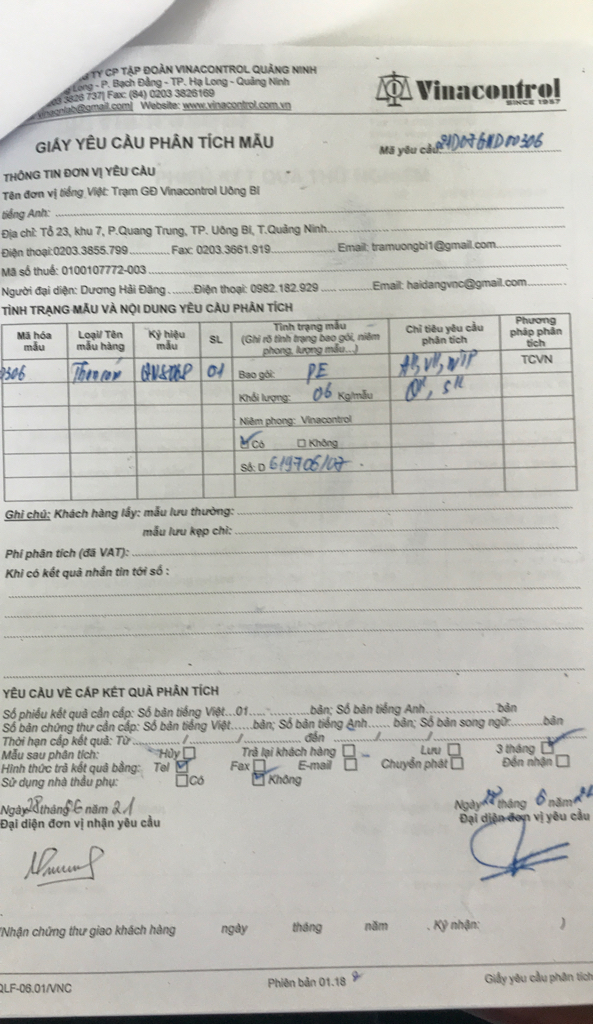 TY CP TẬP ĐOÀN VINACONTROL QUẢNG NINH
Long - P. Bạch Đằng - TP. Hạ Long - Quảng Ninh
3826 737| Fax: (84) 0203 3826169
@gmail.com| Website: www.vinacontrol.com.vn
Vinacontrol
SINCE 1957
GIẤY YÊU CẦU PHÂN TÍCH MẪU
Mã yêu cầu: 21D076ND00306
THÔNG TIN ĐƠN VỊ YÊU CẦU
Tên đơn vị tiếng Việt: Trạm GĐ Vinacontrol Uông Bí
tiếng Anh:
Địa chỉ: Tổ 23, khu 7, P.Quang Trung, TP. Uông Bí, T.Quảng Ninh
Điện thoại:0203.3855.799 Fax: 0203.3661.919 Email: tramuongbi1@gmail.com
Mã số thuế: 0100107772-003
Người đại diện: Dương Hải Đăng Điện thoại: 0982.182.929 Email: haidangvnc@gmail.com
TÌNH TRẠNG MẪU VÀ NỘI DUNG YÊU CẦU PHÂN TÍCH
Mã hóa mẫu Loại/ Tên mẫu hàng Ký hiệu mẫu SL Tình trạng mẫu (Ghi rõ tình trạng bao gói, niêm phong, lượng mẫu...) Chỉ tiêu yêu cầu phân tích Phương pháp phân tích
0306 01 Bao gói: PE TCVN
Khối lượng: 06 Kg/mẫu
Niêm phong: Vinacontrol
☑ Có ☐ Không
Số: D 619706/07
Ghi chú: Khách hàng lấy: mẫu lưu thường:
mẫu lưu kẹp chì:
Phí phân tích (đã VAT):
Khi có kết quả nhắn tin tới số :
YÊU CẦU VỀ CẤP KẾT QUẢ PHÂN TÍCH
Số phiếu kết quả cần cấp: Số bản tiếng Việt...01 bản; Số bản tiếng Anh bản
Số bản chứng thư cần cấp: Số bản tiếng Việt bản; Số bản tiếng Anh bản; Số bản song ngữ bản
Thời hạn cấp kết quả: Từ / / đến / /
Mẫu sau phân tích: Hủy ☐ Trả lại khách hàng ☐ Lưu ☐ 3 tháng ☑
Hình thức trả kết quả bằng: Tel ☑ Fax ☐ E-mail ☐ Chuyển phát ☐ Đến nhận ☐
Sử dụng nhà thầu phụ: ☐ Có ☑ Không
Ngày 28 tháng 6 năm 21
Đại diện đơn vị nhận yêu cầu
Ngày 28 tháng 6 năm 21
Đại diện đơn vị yêu cầu
Nhận chứng thư giao khách hàng ngày tháng năm . Ký nhận: )
QLF-06.01/VNC Phiên bản 01.18 Giấy yêu cầu phân tích